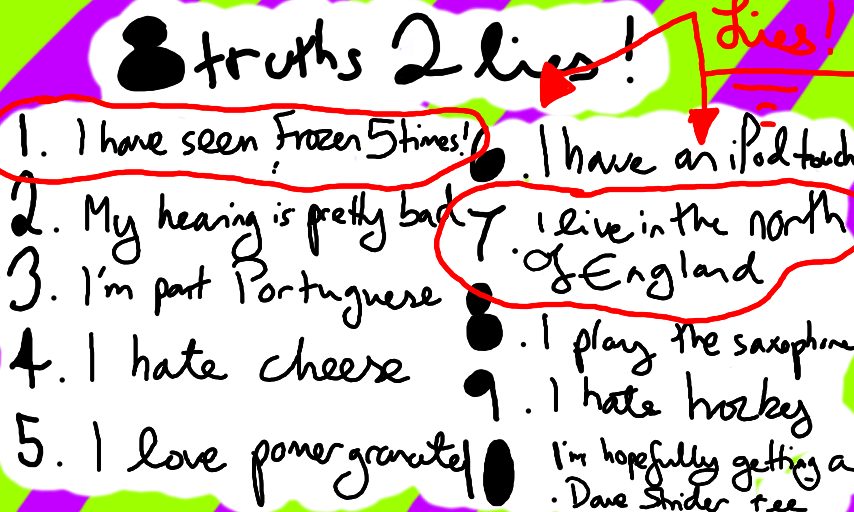 8 truths 2 lies!
Lies!
1. I have seen Frozen 5 times!
2. My hearing is pretty bad
3. I'm part Portuguese
4. I hate cheese
5. I love pomergranate
6. I have an iPod touch
7. I live in the north
of England
8. I play the saxophone
9. I hate hockey
10. I'm hopefully getting a
Dave Strider tee